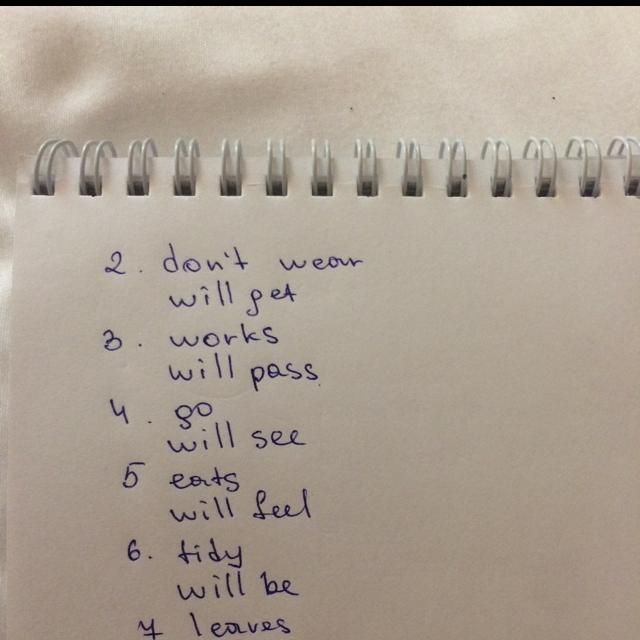 2. don't wear
will get
3. works
will pass
4. go
will see
5 eats
will feel
6. tidy
will be
7 leaves